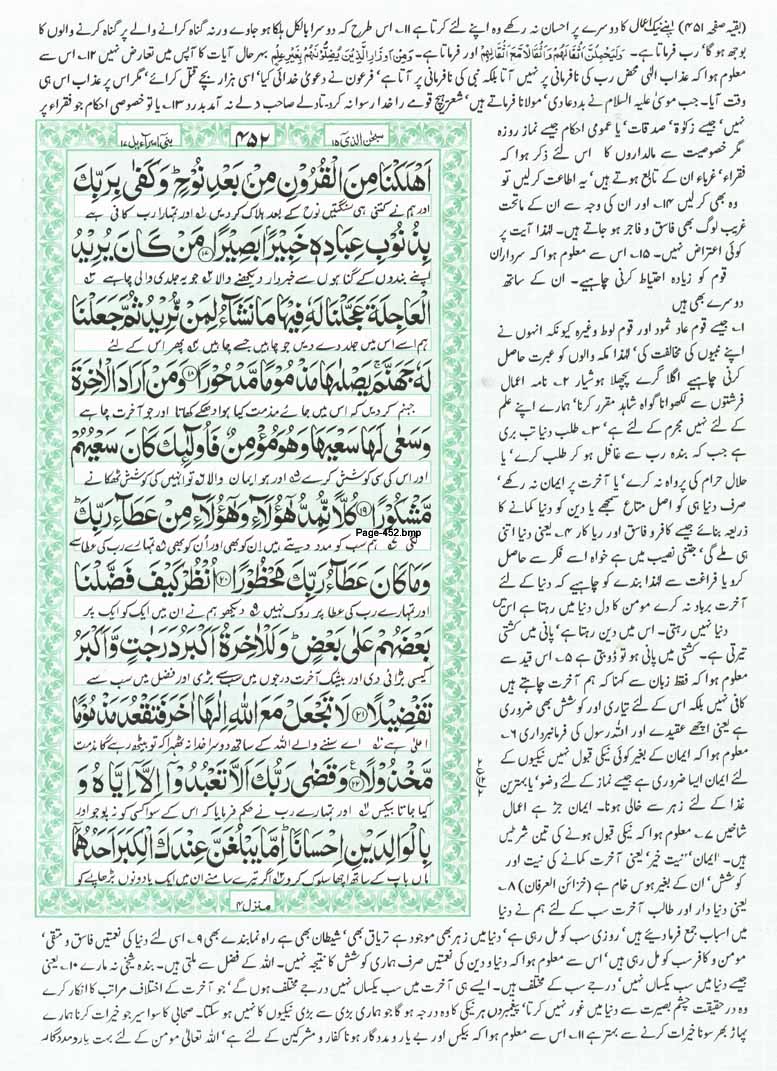 (بقیہ صفحہ ۴۵۱) اپنے نیک اعمال کا دوسرے پر احسان نہ رکھے وہ اپنے لئے کرتا ہے ۱۱۔ اس طرح کہ دوسرا بالکل ہلکا ہو جاوے ورنہ گناہ کرانے والے پر گناہ کرنے والوں کا
بوجھ ہو گا' رب فرماتا ہے۔ وَلَيَحْمِلُنَّ أَثْقَالَهُمْ وَأَثْقَالًا مَّعَ أَثْقَالِهِمْ اور فرماتا ہے۔ وَمِنْ أَوْزَارِ الَّذِينَ يُضِلُّونَهُم بِغَيْرِ عِلْمٍ بہرحال آیات کا آپس میں تعارض نہیں ۱۲۔ اس سے
معلوم ہوا کہ عذاب الٰہی محض رب کی نافرمانی پر نہیں آتا بلکہ نبی کی نافرمانی پر آتا ہے' فرعون نے دعویٰ خدائی کیا' اسی ہزار بچے قتل کرائے' مگر عذاب اس ہی
وقت آیا۔ جب موسیٰ علیہ السلام نے بددعا دی' مولانا فرماتے ہیں' شعر ہیچ قومے را خدا رسوا نہ کرد تا دلے صاحب دلے نہ آمد بدرد ۱۳۔ یا تو خصوصی احکام جو فقراء پر
نہیں' جیسے زکوٰۃ' صدقات' یا عمومی احکام جیسے نماز روزہ
مگر خصوصیت سے مالداروں کا اس لئے ذکر ہوا کہ
فقراء' غرباء ان کے تابع ہوتے ہیں' یہ اطاعت کر لیں تو
وہ بھی کر لیں ۱۴۔ اور ان کی وجہ سے ان کے ماتحت
غریب لوگ بھی فاسق و فاجر ہو جاتے ہیں۔ لہٰذا آیت پر
کوئی اعتراض نہیں۔ ۱۵۔ اس سے معلوم ہوا کہ سرداران
قوم کو زیادہ احتیاط کرنی چاہیے۔ ان کے ساتھ
دوسرے بھی ہیں
۱۔ جیسے قوم عاد ثمود اور قوم لوط وغیرہ کیونکہ انہوں نے
اپنے نبیوں کی مخالفت کی' لہٰذا مکہ والوں کو عبرت حاصل
کرنی چاہیے اگلا گرے پچھلا ہوشیار ۲۔ نامہ اعمال
فرشتوں سے لکھوانا گواہ شاہد مقرر کرنا' ہمارے اپنے علم
کے لئے نہیں مجرم کے لئے ہے' ۳۔ طلب دنیا تب بری
ہے جب کہ بندہ رب سے غافل ہو کر طلب کرے' یا
حلال حرام کی پرواہ نہ کرے' یا آخرت پر ایمان نہ رکھے'
صرف دنیا ہی کو اصل متاع سمجھے یا دین کو دنیا کمانے کا
ذریعہ بنائے جیسے کافر و فاسق اور ریاکار ۴۔ یعنی دنیا اتنی
ہی ملے گی' جتنی نصیب میں ہے خواہ اسے فکر سے حاصل
کرو یا فراغت سے لہٰذا بندے کو چاہیے کہ دنیا کے لئے
آخرت برباد نہ کرے مومن کا دل دنیا میں رہتا ہے اس میں
دنیا نہیں رہتی۔ اس میں دین رہتا ہے' پانی میں کشتی
تیرتی ہے۔ کشتی میں پانی ہو تو ڈوبتی ہے ۵۔ اس قید سے
معلوم ہوا کہ فقط زبان سے کہنا کہ ہم آخرت چاہتے ہیں
کافی نہیں بلکہ اس کے لئے تیاری اور کوشش بھی ضروری
ہے یعنی اچھے عقیدے اور اللہ رسول کی فرمانبرداری ۶۔
معلوم ہوا کہ ایمان کے بغیر کوئی نیکی قبول نہیں نیکیوں کے
لئے ایمان ایسا ضروری ہے جیسے نماز کے لئے وضو' یا بہترین
غذا کے لئے زہر سے خالی ہونا۔ ایمان جڑ ہے اعمال
شاخیں ۷۔ معلوم ہوا کہ نیکی قبول ہونے کی تین شرطیں
ہیں۔ ایمان' نیت خیر' یعنی آخرت کمانے کی نیت اور
کوشش' ان کے بغیر ہوس خام ہے (خزائن العرفان) ۸۔
یعنی دنیا دار اور طالب آخرت سب کے لئے ہم نے دنیا
۴۵۲
سبحٰن الذی ۱۵
بنی اسراءیل ۱۷
اَهْلَكْنَا مِنَ الْقُرُوْنِ مِنْۢ بَعْدِ نُوْحٍ ؕ وَكَفٰى بِرَبِّكَ
اور ہم نے کتنی ہی سنگتیں نوح کے بعد ہلاک کر دیں ۱ اور تمہارا رب کافی ہے
بِذُنُوْبِ عِبَادِهٖ خَبِيْرًۢا بَصِيْرًا ۝۱۷ مَنْ كَانَ يُرِيْدُ
اپنے بندوں کے گناہوں سے خبردار دیکھنے والا ۲ جو یہ جلدی والی چاہے ۳
الْعَاجِلَةَ عَجَّلْنَا لَهٗ فِيْهَا مَا نَشَآءُ لِمَنْ نُّرِيْدُ ثُمَّ جَعَلْنَا
ہم اسے اس میں جلد دے دیں جو چاہیں جسے چاہیں ۴ پھر اس کے لئے
لَهٗ جَهَنَّمَ ۚ يَصْلٰىهَا مَذْمُوْمًا مَّدْحُوْرًا ۝۱۸ وَمَنْ اَرَادَ الْاٰخِرَةَ
جہنم کر دیں کہ اس میں جائے مذمت کیا ہوا دھکے کھاتا اور جو آخرت چاہے
وَسَعٰى لَهَا سَعْيَهَا وَهُوَ مُؤْمِنٌ فَاُولٰٓئِكَ كَانَ سَعْيُهُمْ
اور اس کی سی کوشش کرے ۵ اور ہو ایمان والا ۶ تو انہیں کی کوشش ٹھکانے
مَّشْكُوْرًا ۝۱۹ كُلًّا نُّمِدُّ هٰٓؤُلَآءِ وَهٰٓؤُلَآءِ مِنْ عَطَآءِ رَبِّكَ ؕ
لگی ۷ ہم سب کو مدد دیتے ہیں ان کو بھی اور ان کو بھی ۸ تمہارے رب کی عطا سے
Page-452.bmp
وَمَا كَانَ عَطَآءُ رَبِّكَ مَحْظُوْرًا ۝۲۰ اُنْظُرْ كَيْفَ فَضَّلْنَا
اور تمہارے رب کی عطا پر روک نہیں ۹ دیکھو ہم نے ان میں ایک کو ایک پر
بَعْضَهُمْ عَلٰى بَعْضٍ ؕ وَلَلْاٰخِرَةُ اَكْبَرُ دَرَجٰتٍ وَّاَكْبَرُ
کیسی بڑائی دی اور بیشک آخرت درجوں میں سب سے بڑی اور فضل میں سب سے
تَفْضِيْلًا ۝۲۱ لَا تَجْعَلْ مَعَ اللّٰهِ اِلٰهًا اٰخَرَ فَتَقْعُدَ مَذْمُوْمًا
اعلیٰ ہے ۱۰ اے سننے والے اللہ کے ساتھ دوسرا خدا نہ ٹھہرا کہ تو بیٹھ رہے گا مذمت
مَّخْذُوْلًا ۝۲۲ وَقَضٰى رَبُّكَ اَلَّا تَعْبُدُوْٓا اِلَّآ اِيَّاهُ وَ
کیا جاتا بیکس ۱۱ اور تمہارے رب نے حکم فرمایا کہ اس کے سوا کسی کو نہ پوجو اور
بِالْوَالِدَيْنِ اِحْسَانًا ؕ اِمَّا يَبْلُغَنَّ عِنْدَكَ الْكِبَرَ اَحَدُهُمَآ
ماں باپ کے ساتھ اچھا سلوک کرو ۱۲ اگر تیرے سامنے ان میں ایک یا دونوں بڑھاپے کو
منزل ۴
میں اسباب جمع فرما دیئے ہیں' روزی سب کو مل رہی ہے' دنیا میں زہر بھی موجود ہے تریاق بھی' شیطان بھی ہے راہ نما بندے بھی ۹۔ اسی لئے دنیا کی نعمتیں فاسق و متقی'
مومن و کافر سب کو مل رہی ہیں' اس سے معلوم ہوا کہ دنیا و دین کی نعمتیں صرف ہماری کوشش کا نتیجہ نہیں۔ اللہ کے فضل سے ملتی ہیں۔ بندہ شیخی نہ مارے ۱۰۔ یعنی
جیسے دنیا میں سب یکساں نہیں' درجے سب کے مختلف ہیں۔ ایسے ہی آخرت میں سب یکساں نہیں درجے مختلف ہوں گے' جو آخرت کے اختلاف مراتب کا انکار کرے
وہ در حقیقت چشم بصیرت سے دنیا میں غور نہیں کرتا' پیغمبروں ہر نیکی کا وہ درجہ ہو گا جو ہماری بڑی سے بڑی نیکیوں کا نہیں ہو سکتا۔ صحابی کا سوا سیر جو خیرات کرنا ہمارے
پہاڑ بھر سونا خیرات کرنے سے بہتر ہے ۱۱۔ اس سے معلوم ہوا کہ بیکس اور بے یار و مددگار ہونا کفار و مشرکین کے لئے ہے' اللہ تعالیٰ مومن کے لئے بہت یار و مددگار